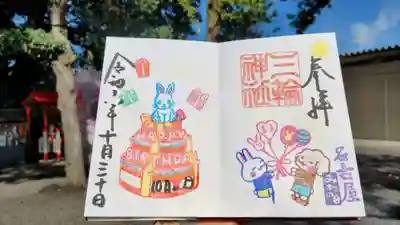 奉拝
三輪
神社
名古屋
令和六年十月三十日
HAPPY
BIRTHDAY